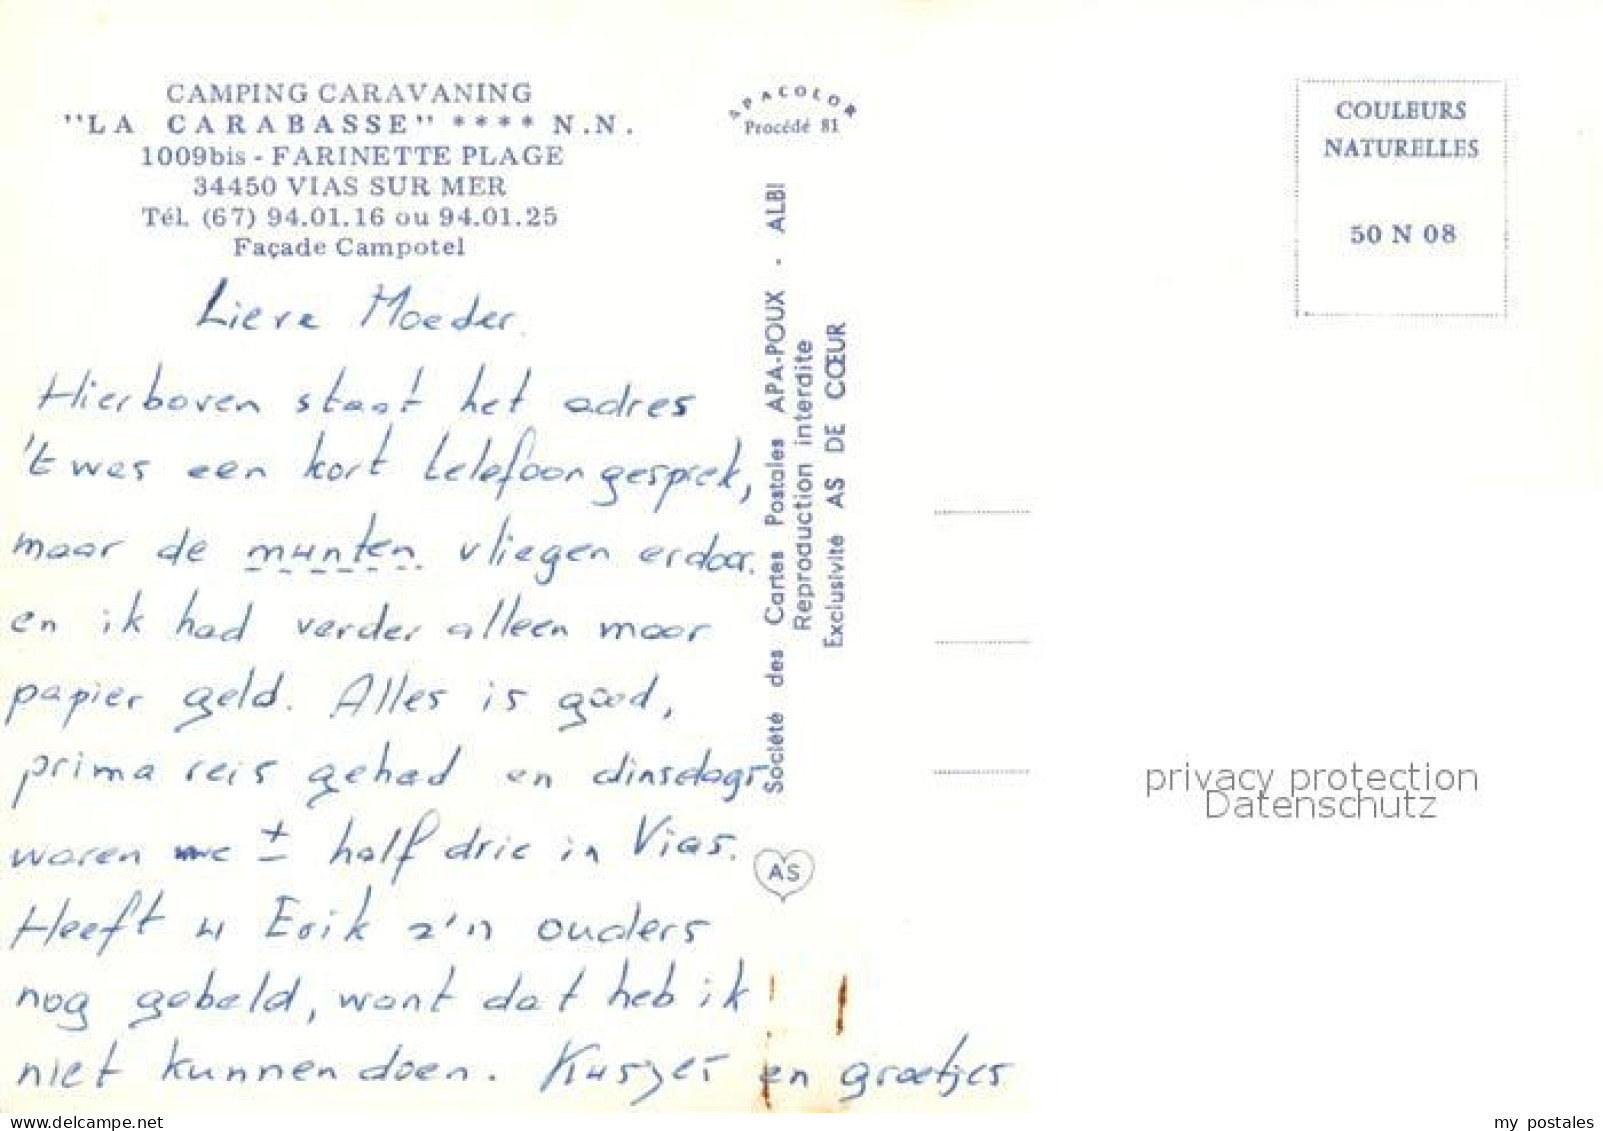 CAMPING CARAVANING
"LA CARABASSE" **** N.N.
1009bis - FARINETTE PLAGE
34450 VIAS SUR MER
Tél. (67) 94.01.16 ou 94.01.25
Façade Campotel
Lieve Moeder.
Hierboven staat het adres
't was een kort telefoongesprek,
maar de munten vliegen erdoor.
en ik had verder alleen maar
papier geld. Alles is goed,
prima reis gehad en dinsdags
waren we ± half drie in Vias.
Heeft u Erik z'n ouders
nog gebeld, want dat heb ik
niet kunnen doen. Kusjes en groetjes
APACOLOR
Procédé 81
Société des Cartes Postales APA-POUX - ALBI
Reproduction interdite
Exclusivité AS DE CŒUR
AS
COULEURS
NATURELLES
50 N 08
privacy protection
Datenschutz
my postales